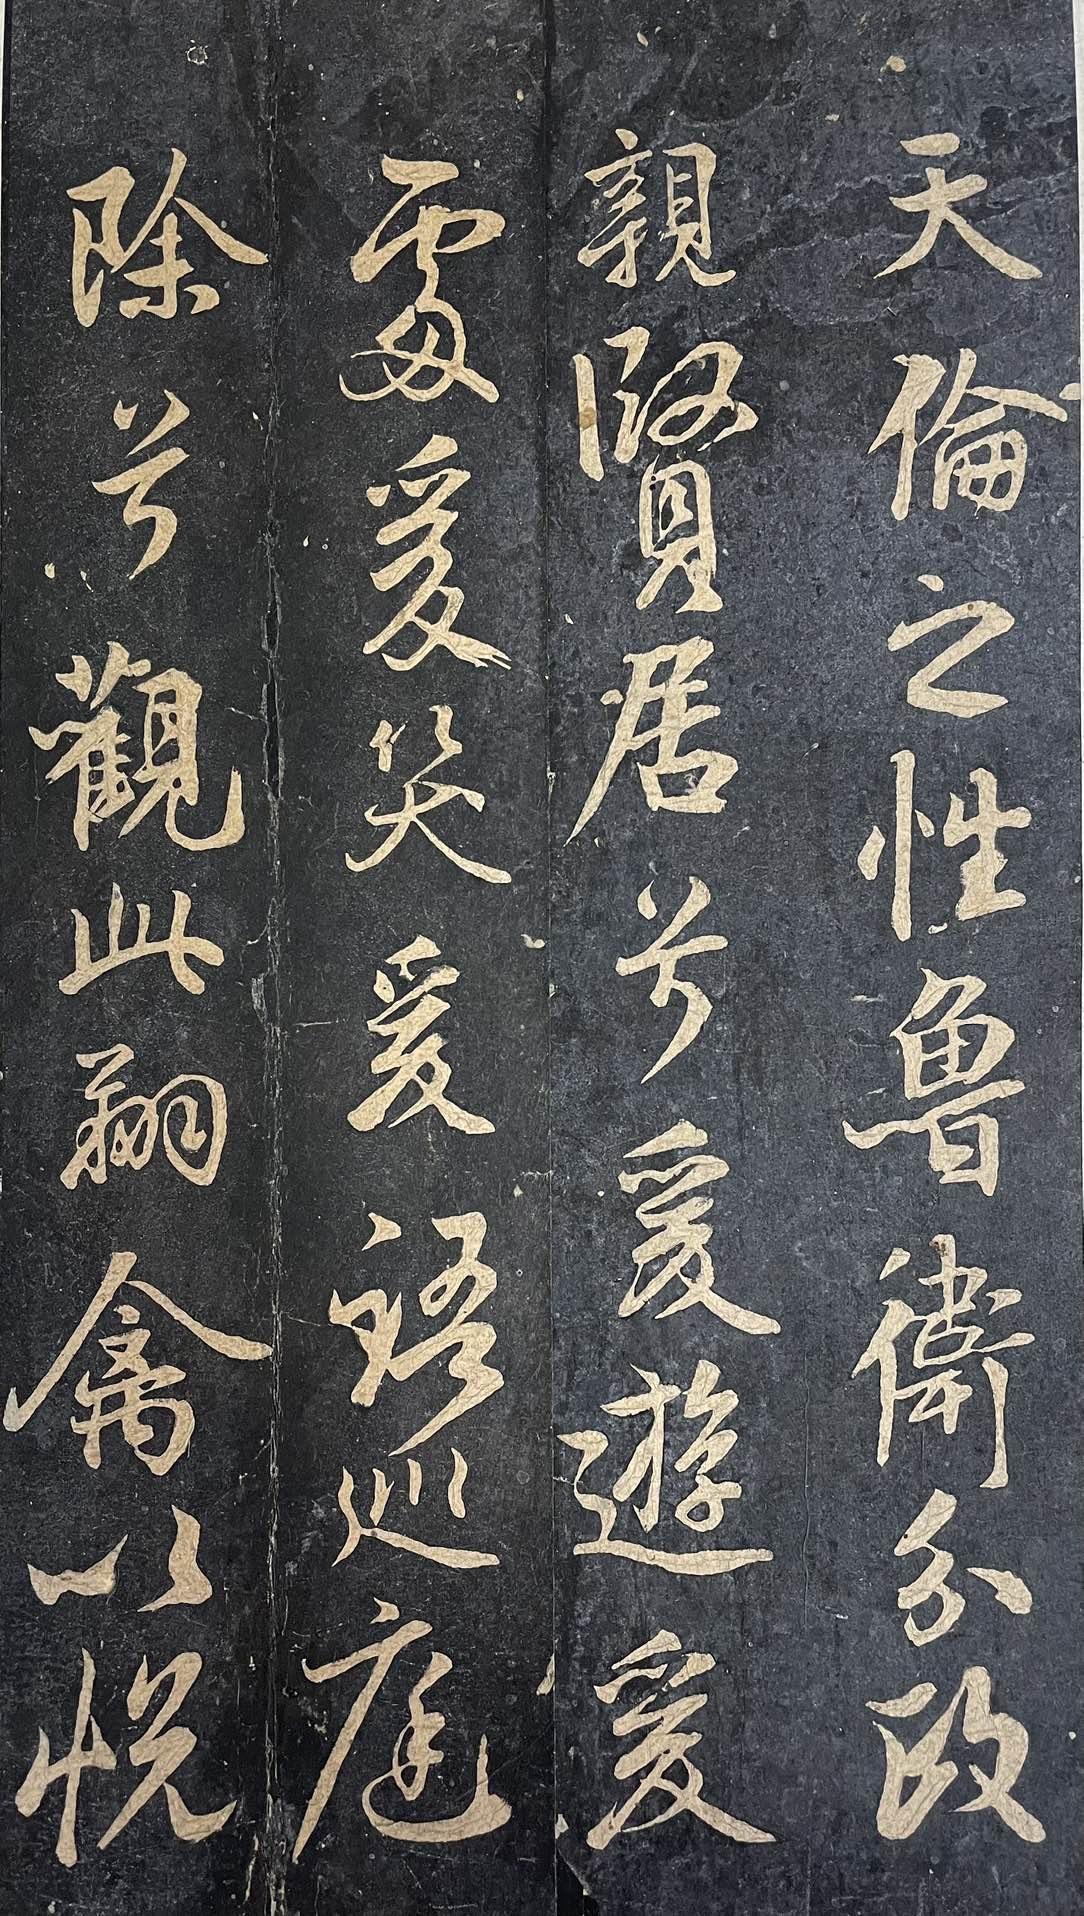 天倫之性魯衛分政
親賢居兮爰遊爰
處爰笑爰語巡庭
除兮觀此翔禽以悅